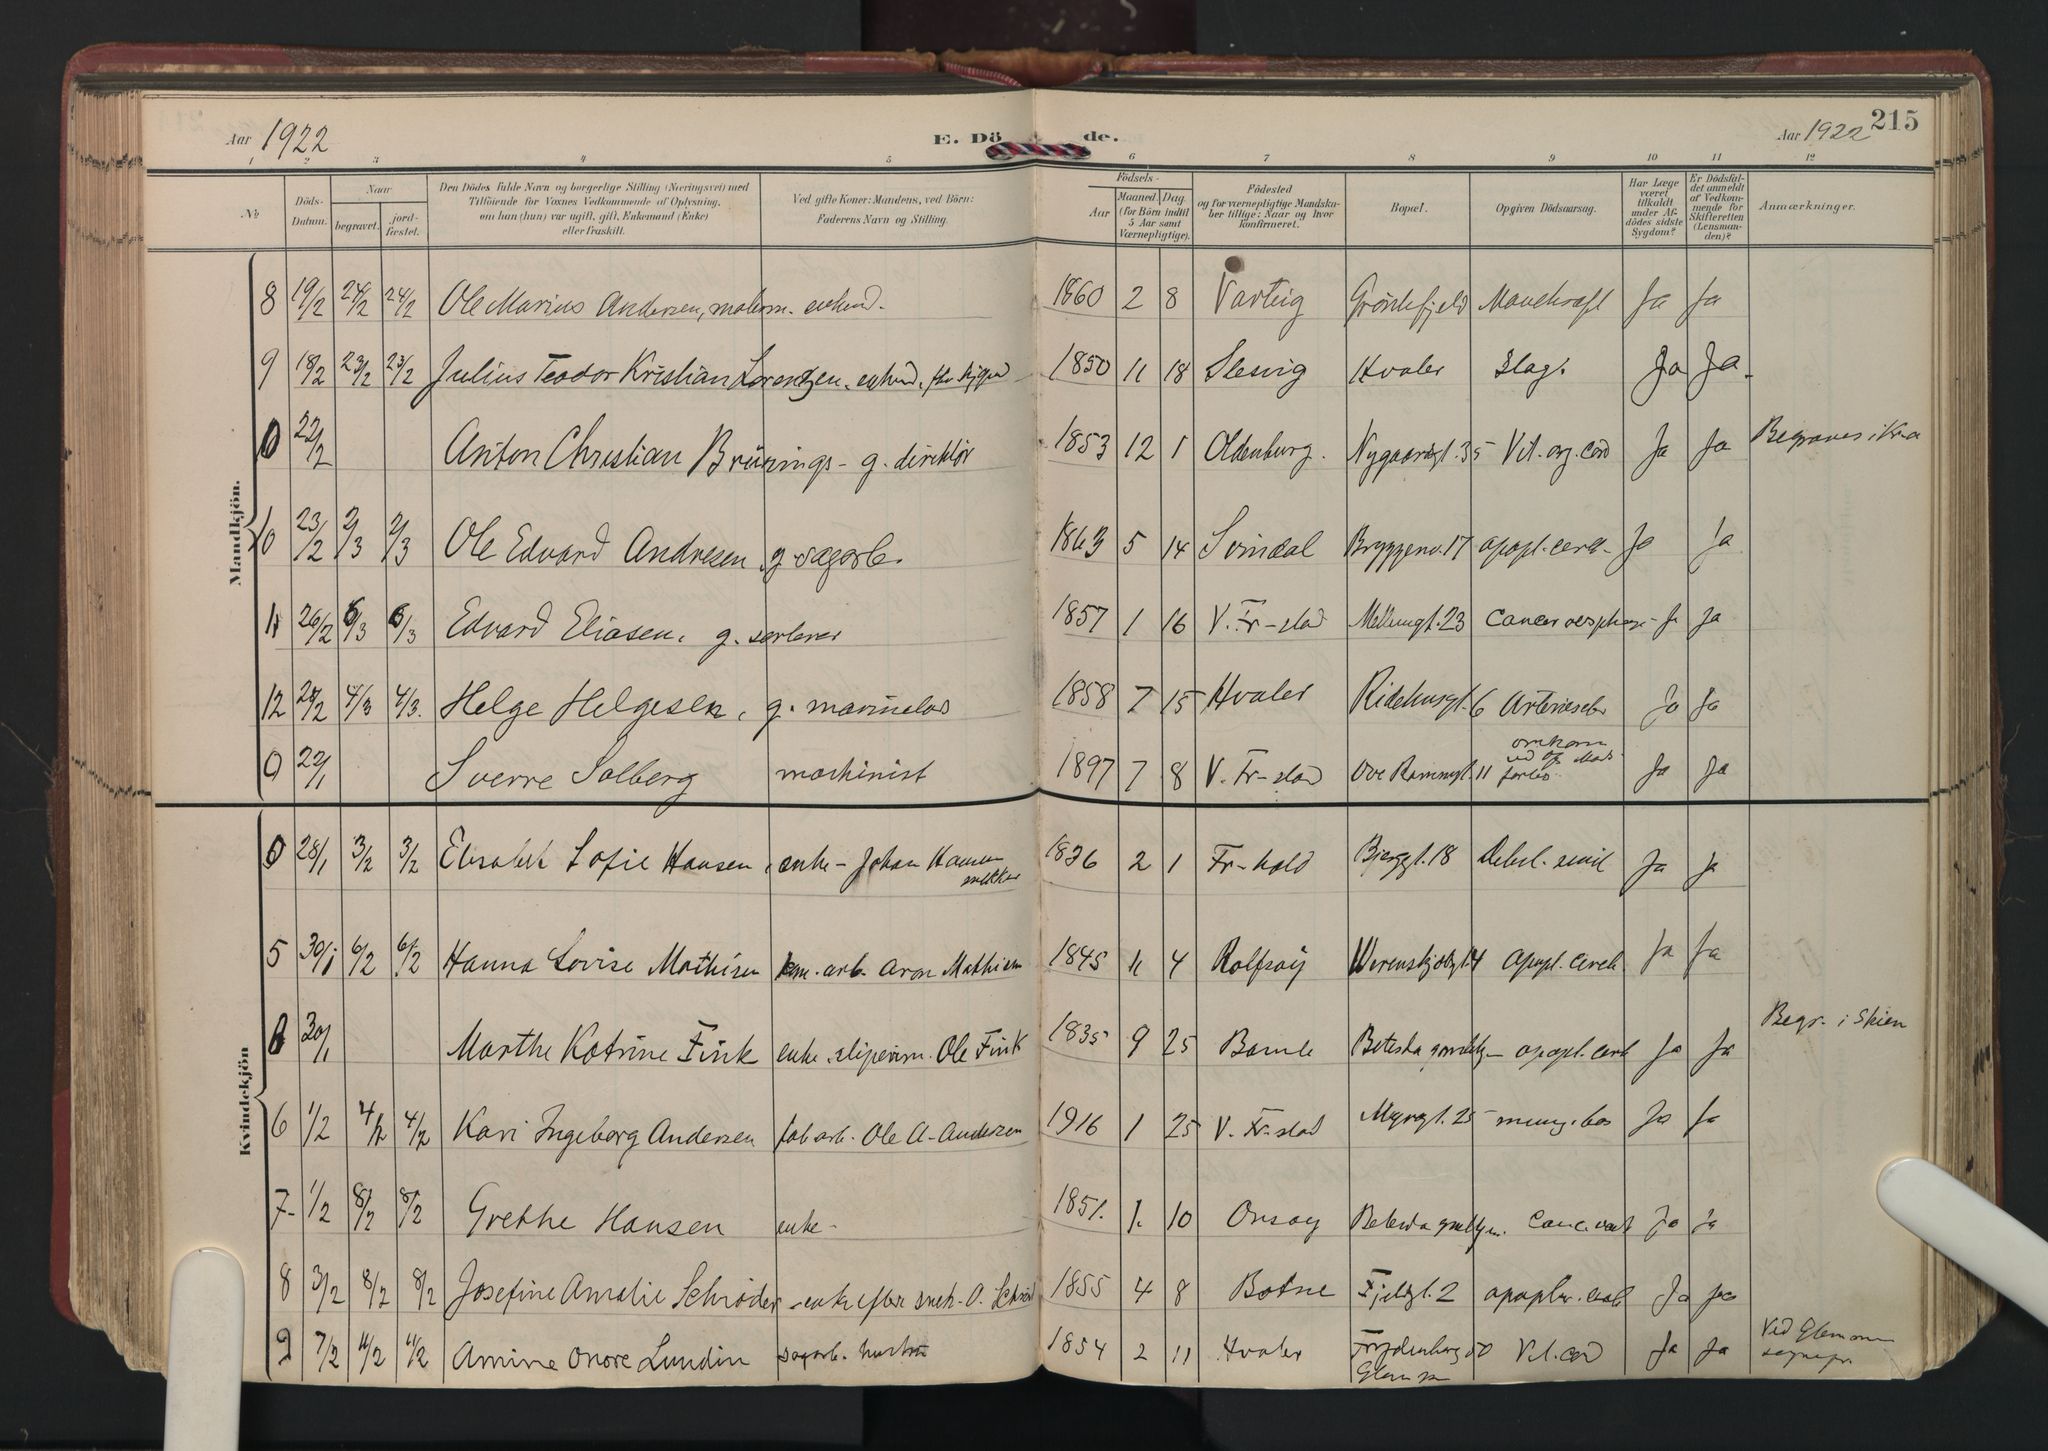 Aar 1922
E. Dö de.
Aar 1922
215
1 2 3 4 5 6 7 8 9 10 11 12
№
Döds-Datum.
Naar
begravet.
jord-fæstet.
Den Dödes fulde Navn og borgerlige Stilling (Næringsvei) med
Tilföiende for Voxnes Vedkommende af Oplysning,
om han (hun) var ugift, gift, Enkemand (Enke)
eller fraskilt.
Ved gifte Koner: Mandens, ved Börn:
Faderens Navn og Stilling.
Födsels-
Aar
Maaned. Dag.
(for Börn indtil
5 Aar samt
Værnepligtige).
Födested
og for værnepligtige Mandska-
ber tillige: Naar og hvor
konfirmeret.
Bopæl.
Opgiven Dödsaarsag.
Har Læge
været
tilkaldt
under Af-
dödes sidste
Sygdom?
Er Dödsfal-
det anmeldt
af Vedkom-
mende for
Skifteretten
(Lensman-
den)?
Anmærkninger.
Mandkjön.
8 19/2 24/2 24/2 Ole Marius Andersen, malerm. enkem. 1860 2 8 Varteig Ja Ja
9 18/2 23/2 23/2 Julius Teodor Kristian Lorentzen, enkem. 1850 11 18 Slesvig Hvaler Slag. Ja Ja.
0 22/2 Anton Christian Brünings - g. direktör 1853 12 1 Oldenburg. Nygaardsgt. 35 Vit. org. cord Ja Ja Begraves i Kr.a
10 23/2 2/3 2/3 Ole Edvard Andresen, g. sagarb. 1863 5 14 Svindal Bryggerv. 17 apopl. cereb. Ja Ja
11 26/2 6/3 6/3 Edvard Eliasen, g. 1857 1 16 V. Fr-stad Mellemgt. 23 Cancer oesphag- Ja Ja
12 28/2 4/3 4/3. Helge Helgesen, g. 1858 7 15 Hvaler Ridehusgt. 6 Ja Ja
0 22/1 Sverre Solberg maskinist 1897 7 8 V. Fr-stad Ove Ramsgt. 11 omkom ved forlis. Ja Ja
Kvindekjön
0 28/1 3/2 3/2 Elisabet Sofie Hansen, enke - Johan Hansen 1836 2 1 Fr-hald Bjerggt. 18 Debil. senil Ja Ja
5 30/1 6/2 6/2 Hanna Lovise Mathisen arb. Aron Mathisen 1845 11 4 Rolfsøy Werenskjoldgt. 4 apopl. cereb. Ja Ja
6 30/1 Marthe Katrine Fink enke. sliperim. Ole Fink 1835 9 25 Bamle Betesda gamlehjem apopl. cereb Ja Ja Begr. i Skien
6 1/2 4/2 4/2 Kari Ingeborg Andersen fab. arb. Ole A. Andersen 1916 1 25 V. Fr-stad Myrgt. 25 Ja Ja
7- 1/2 8/2 8/2 Grethe Hansen enke - 1851. 1. 10 Onsøy Betesda Canc. vent Ja Ja
8 3/2 8/2 8/2 Josefine Amalie Schrøder - enke efter snek. O. Schrøder 1855 4 8 Botne Fjeldgt. 2 apoplex. cereb Ja Ja
9 7/2 11/2 11/2 Amine Onore Lundin sagarb. hustru 1854 2 11 Hvaler Frydenberg Vit. cord Ja Ja Ved Glemmen sognepr.